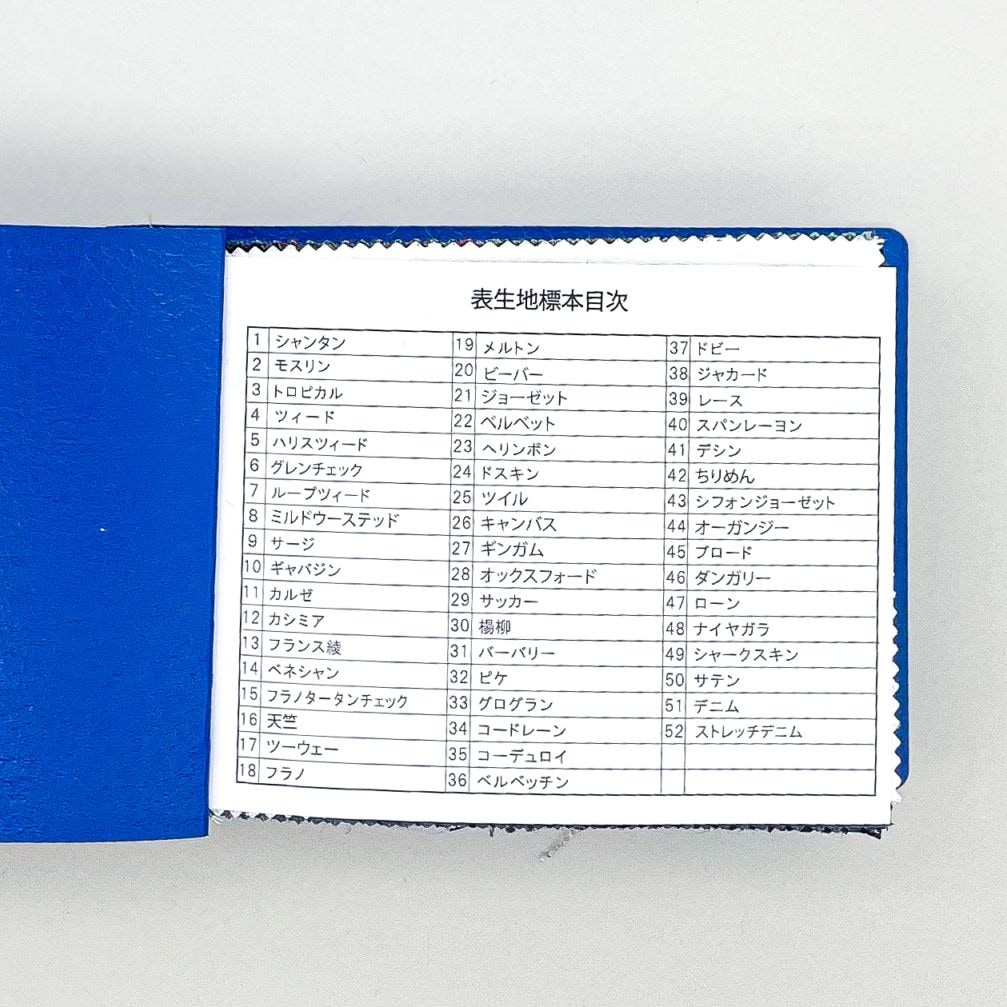 表生地標本目次
1 シャンタン
2 モスリン
3 トロピカル
4 ツィード
5 ハリスツィード
6 グレンチェック
7 ループツィード
8 ミルドウーステッド
9 サージ
10 ギャバジン
11 カルゼ
12 カシミア
13 フランス綾
14 ベネシャン
15 フラノタータンチェック
16 天竺
17 ツーウェー
18 フラノ
19 メルトン
20 ビーバー
21 ジョーゼット
22 ベルベット
23 ヘリンボン
24 ドスキン
25 ツイル
26 キャンバス
27 ギンガム
28 オックスフォード
29 サッカー
30 楊柳
31 バーバリー
32 ピケ
33 グログラン
34 コードレーン
35 コーデュロイ
36 ベルベッチン
37 ドビー
38 ジャカード
39 レース
40 スパンレーヨン
41 デシン
42 ちりめん
43 シフォンジョーゼット
44 オーガンジー
45 ブロード
46 ダンガリー
47 ローン
48 ナイヤガラ
49 シャークスキン
50 サテン
51 デニム
52 ストレッチデニム